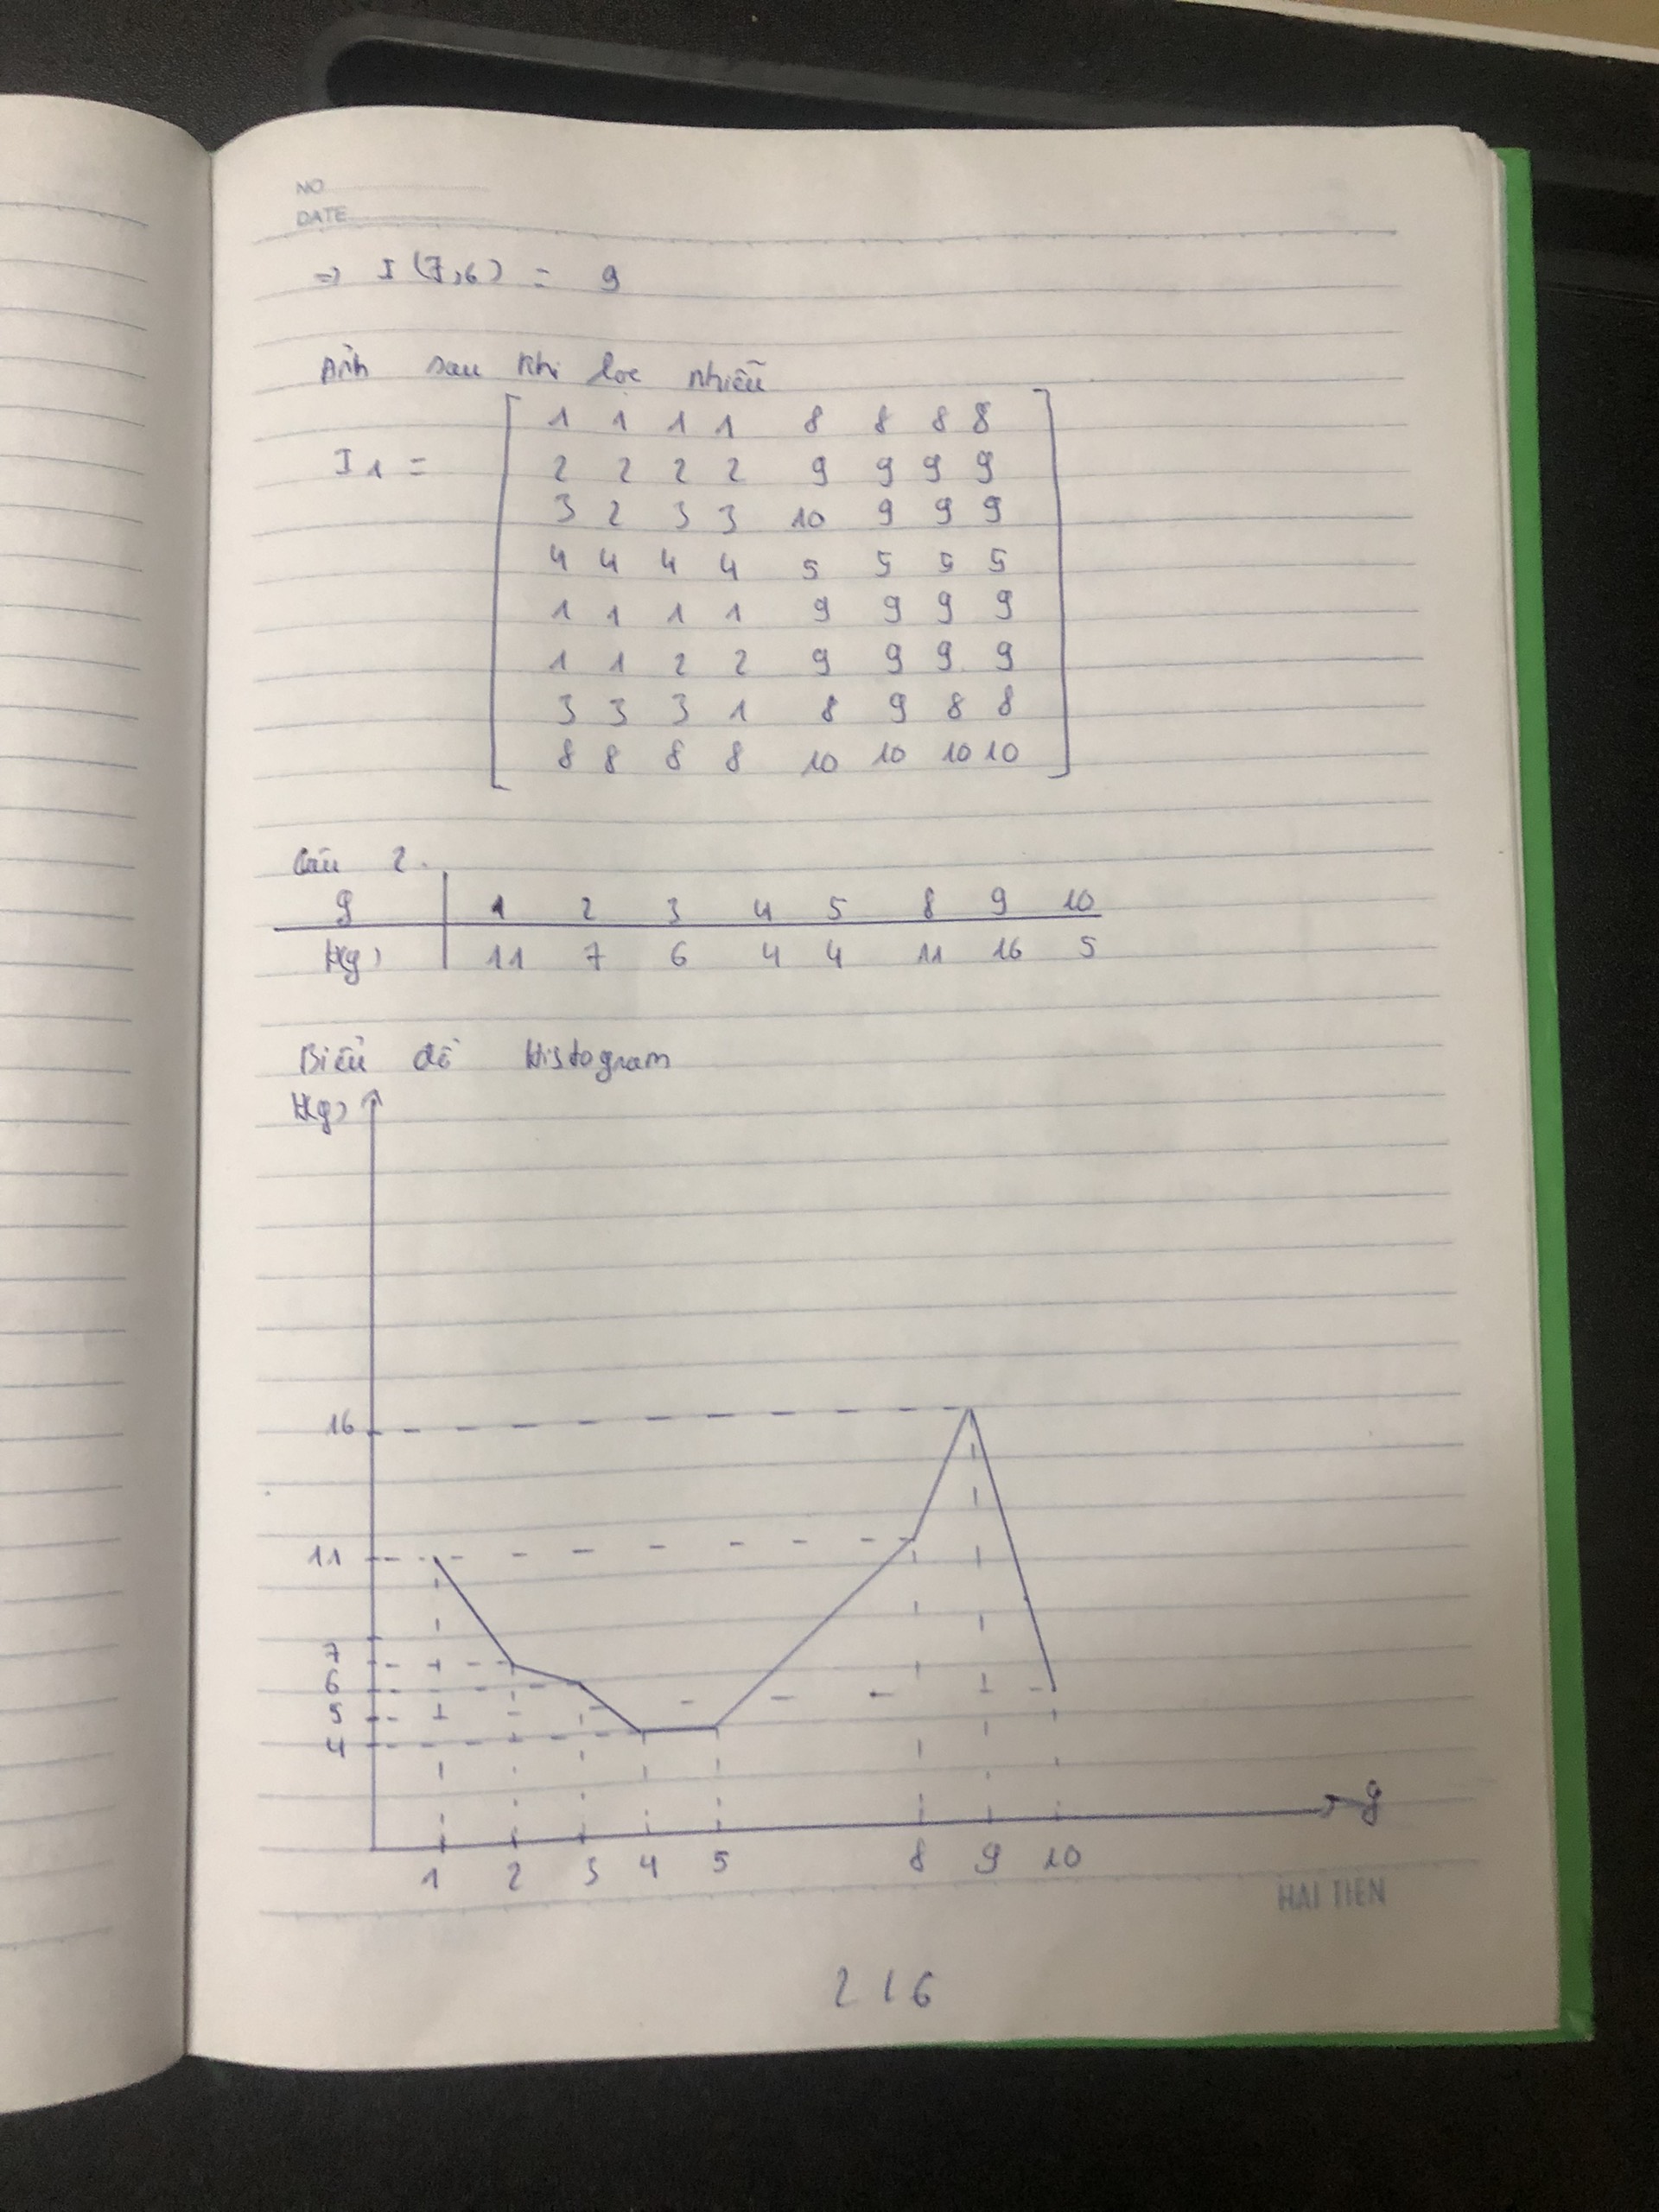 NO
DATE
=> I (7,6) = 9
Ảnh sau khi lọc nhiễu
1 1 1 1 8 8 8 8
I1 = 2 2 2 2 9 9 9 9
3 2 3 3 10 9 9 9
4 4 4 4 5 5 5 5
1 1 1 1 9 9 9 9
1 1 2 2 9 9 9 9
3 3 3 1 8 9 8 8
8 8 8 8 10 10 10 10
Câu 2.
g 1 2 3 4 5 8 9 10
H(g) 11 7 6 4 4 11 16 5
Biểu đồ Histogram
H(g)
16
11
7
6
5
4
g
1 2 3 4 5 8 9 10
HẢI TIẾN
2/6